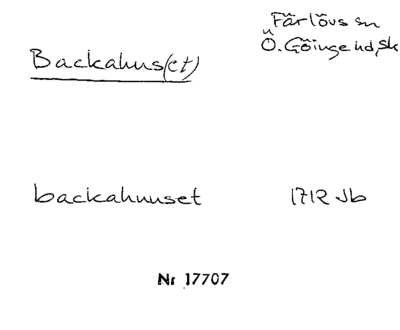 Färlövs sn
Backahus(et)
Ö. Göinge hd, Sk
backahuuset 1712 Jb
Nr 17707